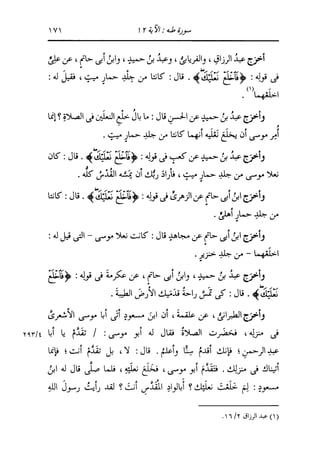 سورة طه : الآية ١٢
١٧١
أخرج عبدُ الرزاقِ ، والفريابىُّ ، وعبدُ بنُ حميدٍ ، وابنُ أبى حاتمٍ ، عن علىٍّ
فى قولِه : ﴿فَٱخۡلَعۡ نَعۡلَيۡكَ﴾ . قال : كانتا من جِلْدِ حمارٍ ميتٍ ، فقيل له :
اخلَعْهما(١) .
وأخرَج عبدُ بنُ حميدٍ عن الحسنِ قال : ما بالُ خلْعِ النعلَين فى الصلاةِ ؟ إنما
أُمِر موسى أن يخلَعَ نَعْلَيه أنهما كانتا من جلدِ حمارٍ ميتٍ .
وأخرَج عبدُ بنُ حميدٍ عن كعبٍ فى قولِه : ﴿فَٱخۡلَعۡ نَعۡلَيۡكَ﴾ . قال : كان
نعلا موسى من جلدِ حمارٍ ميتٍ ، فأرادَ ربُّك أن يمَسَّه القُدْسُ كلُّه .
وأخرَج ابنُ أبى حاتمٍ عن الزهرىِّ فى قولِه : ﴿فَٱخۡلَعۡ نَعۡلَيۡكَ﴾ . قال : كانتا
من جلدِ حمارٍ أهلىٍّ .
وأخرَج ابنُ أبى حاتمٍ عن مجاهدٍ قال : كانت نعلا موسى - التى قيل له :
اخلَعْهما - من جلدِ خنزيرٍ .
وأخرَج عبدُ بنُ حميدٍ ، وابنُ أبى حاتمٍ ، عن عكرمةَ فى قولِه : ﴿فَٱخۡلَعۡ
نَعۡلَيۡكَ﴾ . قال : كى تمَسَّ راحةُ قدَمَيك الأرضَ الطيبةَ .
وأخرَج الطبرانىُّ ، عن علقمةَ ، أن ابنَ مسعودٍ أتَى أبا موسى الأشعرىَّ
فى منزلِه ، فحضَرت الصلاةُ فقال له أبو موسى : / تقدَّمْ يا أبا
٢٩٣/٤
عبدِ الرحمنِ ؛ فإنك أقدمُ سِنًّا وأعلمُ . قال : لا ، بل تقدَّمْ أنت ؛ فإنما
أتيناك فى منزلِك . فتقدَّم أبو موسى ، فخلَع نعلَيْه ، فلما صلَّى قال له ابنُ
مسعودٍ : لِمَ خلَعْتَ نعلَيْك ؟ أبالوادِ المُقَدَّسِ أنتَ ؟ لقد رأيتُ رسولَ اللهِ
(١) عبد الرزاق ١٦/٢.